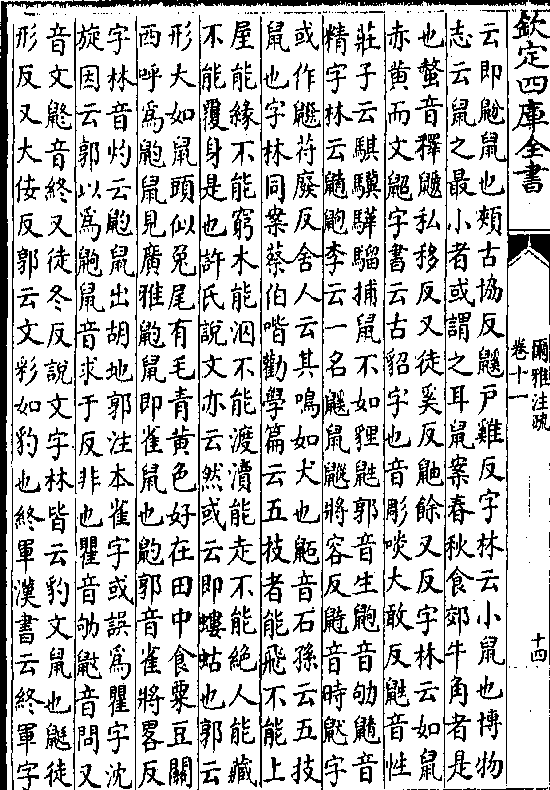 欽定四庫全書
爾雅注疏
卷十一
十四
云即鼢鼠也頰古協反鼷户雞反字林云小鼠也博物
志云鼠之最小者或謂之耳鼠案春秋食郊牛角者是
也螫音釋鼶私移反又徒奚反鼬餘又反字林云如鼠
赤黄而文鼦字書云古貂字也音彫啖大敢反鼪音性
莊子云騏驥驊騮捕鼠不如貍鼪郭音生鼩音劬鼱音
精字林云鼱鼩李云一名鼷鼠鼷將容反鼭音時鼣字
或作鼣苻廢反舍人云其鳴如犬也鼫音石孫云五技
鼠也字林同案蔡伯喈勸學篇云五技者能飛不能上
屋能緣不能窮木能泅不能渡瀆能走不能絶人能藏
不能覆身是也許氏說文亦云然或云即螻蛄也郭云
形大如鼠頭似兔尾有毛青黄色好在田中食粟豆關
西呼為鼩鼠見廣雅鼩鼠即雀鼠也鼩郭音雀將畧反
字林音灼云鼩鼠出胡地郭注本雀字或誤為瞿字沈
旋因云郭以為鼩鼠音求于反非也瞿音劬鼤音問又
音文鼨音終又徒冬反說文字林皆云豹文鼠也鼮徒
形反又大佞反郭云文彩如豹也終軍漢書云終軍字